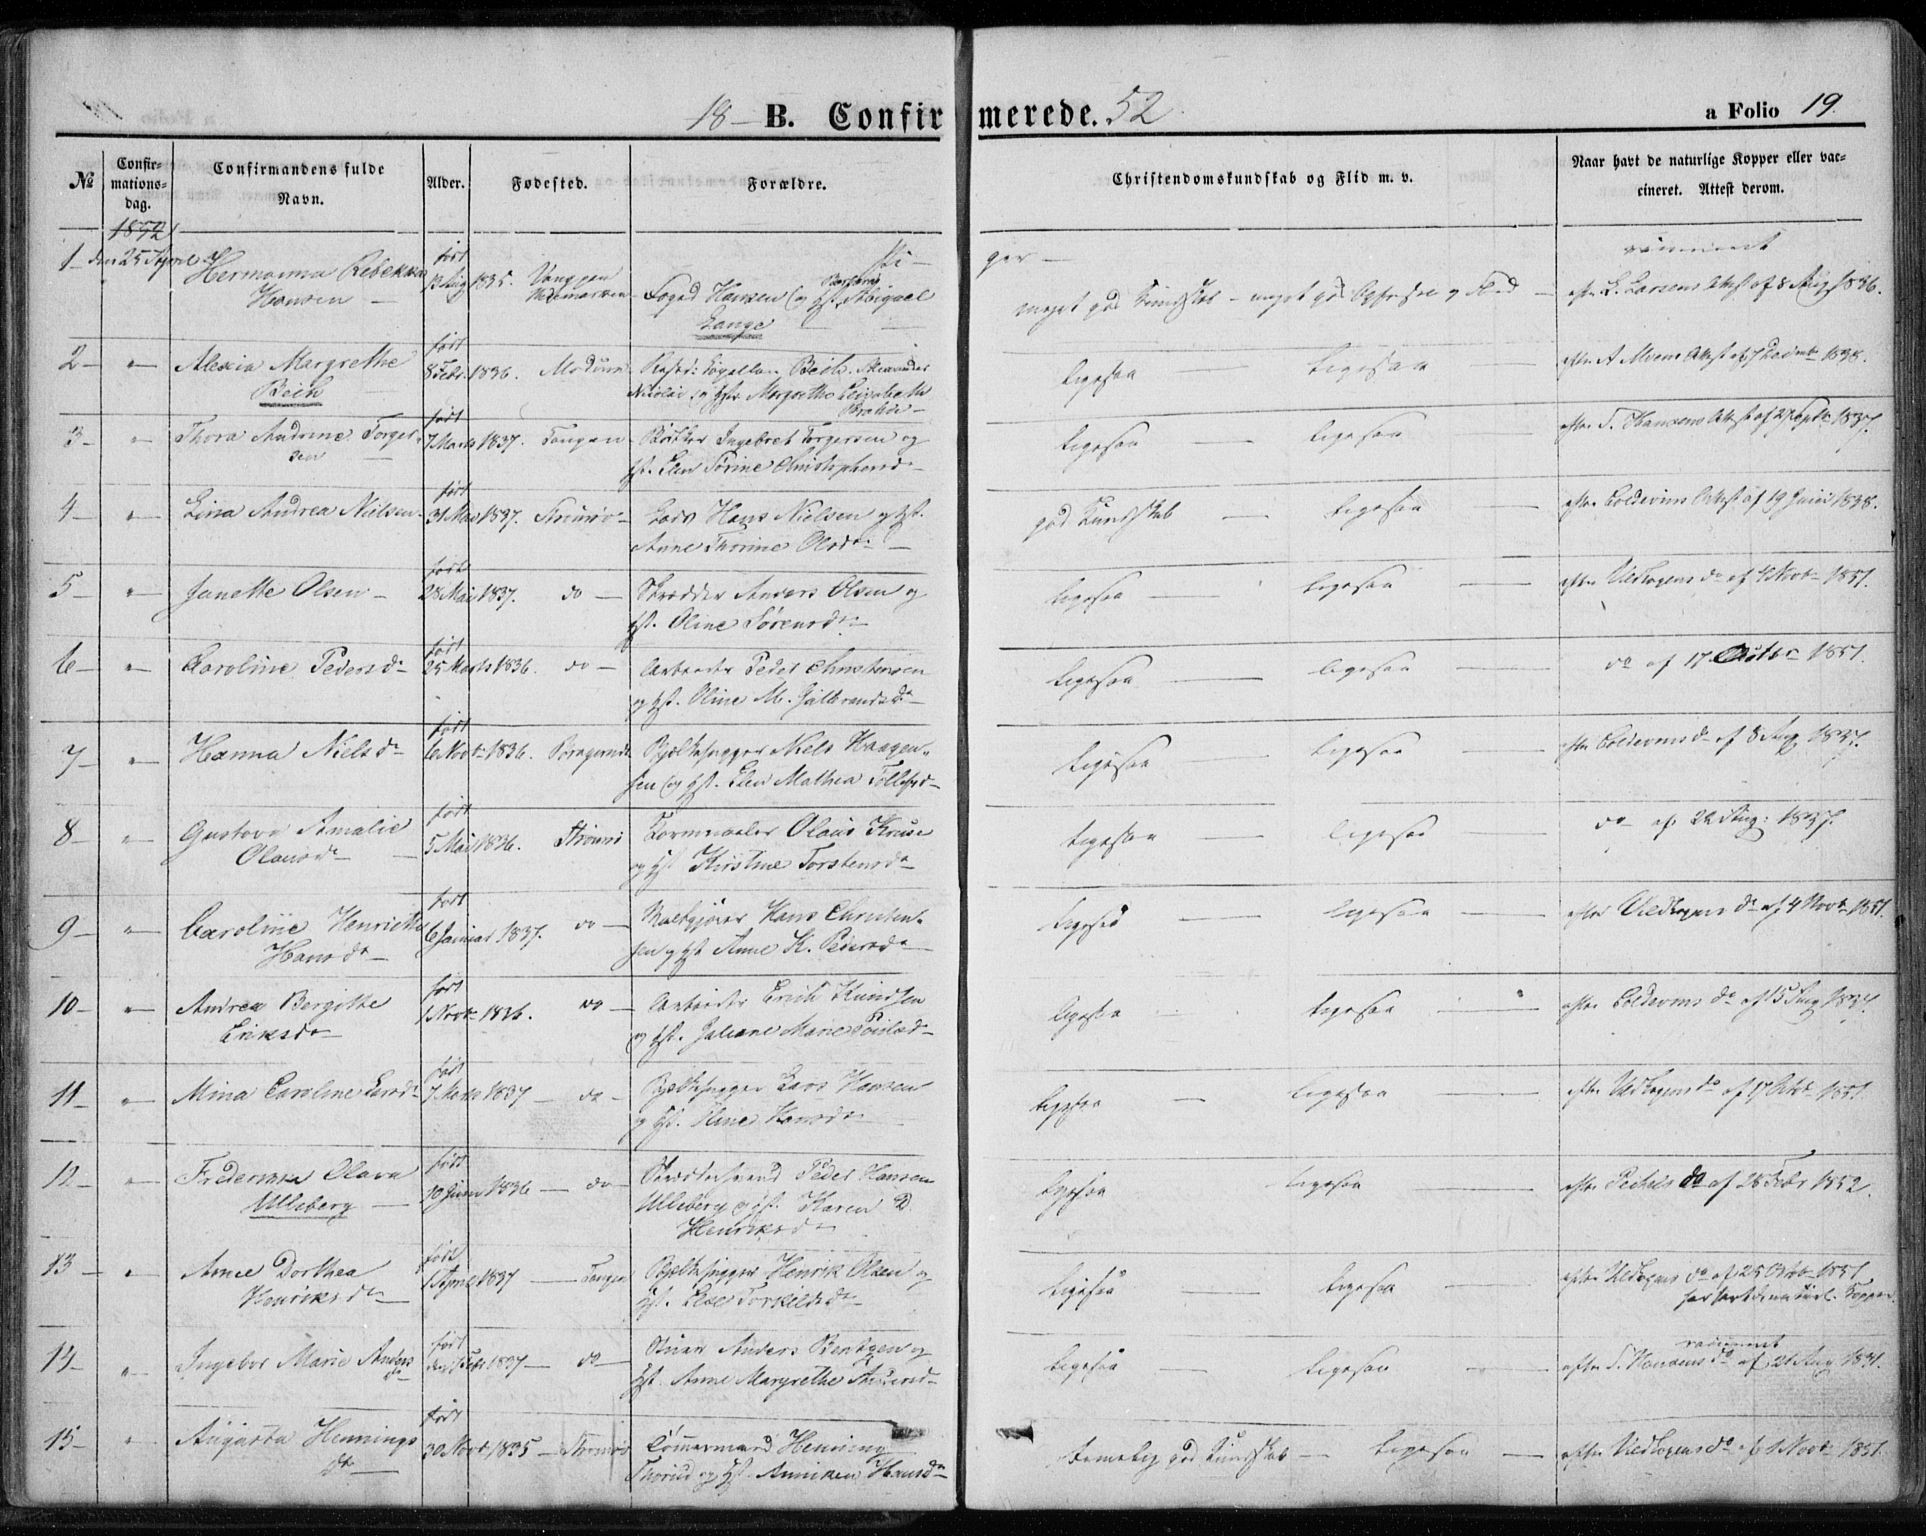 18 — B. Confirmerede. 52.
a Folio 19.
№ Confir- mations- dag. Confirmandens fulde Navn. Alder. Fødested. Forældre. Christendomskundskab og Flid m. v. Naar havt de naturlige Kopper eller vac- cineret. Attest derom.
1852
Pi — ger —
1 — den 25 April Hermanna Rebekka Hansen — født 1835. Foged Hansen og Hst. Abigael Lange meget god Kundskab — meget god Opførsel og Flid — efter L. Larsens Attest af 8 Aug 1836.
2 — " — Alexia Margrethe Beich født 8 Febr. 1836. Modum Beich. Alexander Nicolai og Hst. Margrethe Elizabeth ligesaa ligesaa efter A Moens Attest af 1838.
3 — " — Thora Andrine Torger- sen født 7 Marts 1837. Tangen Bødker Ingebret Torgersen og Hst. Elen Torine Christophersd. — ligesaa — ligesaa — efter T. Hansens Attest af 27 Septbr 1837.
4 — " — Lina Andrea Nielsen — født 31 Mai 1837. Strømsø — Lods Hans Nielsen og Hst. Anne Thorine Olsdr — god Kundskab — ligesaa — efter Coldevins Attest af 19 Juni 1838.
5 — " — Janette Olsen — født 28 Mai 1837. do — Skrædder Anders Olsen og Hst. Oline Sørensdr — ligesaa — ligesaa — efter do af 4 Novbr 1851.
6 — " — Caroline Pedersdr — født 25 Marts 1836. do — Arbeider Peder Christensen og Hst. Oline M. Gulbrandsdr — ligesaa — ligesaa — do af 17 Octbr 1851.
7 — " — Hanna Nielsdr — født 6 Novbr 1836. Bragernæs Bjelkehugger Niels Haagen- sen og Hst. Elen Mathea Tollefsd — ligesaa — ligesaa — efter Coldevins do af 8 Aug 1837.
8 — " — Gustava Amalie Olausdr — født 5 Mai 1836. Strømsø Olaus Kruse og Hst. Kirstine Torstensdr — ligesaa — ligesaa — do af 22 Aug. 1837.
9 — " — Caroline Henriette Hansdr — født 6 Januar 1837. do — Hans Christen- sen og Hst Anne K. Pedersdr — ligesaa — ligesaa — efter do af 4 Novbr 1851.
10 — " — Andrea Bergitte Eriksdr — født 1 Novbr 1836. do — Arbeider Erich Knudsen og Hst. Juliane Marie — ligesaa — ligesaa — efter Coldevins do af 15 Aug 1837.
11 — " — Mina Caroline Larsdr — født 7 Marts 1837 — do — Bjelkehugger Lars Hansen og Hst. Hansdr — ligesaa — ligesaa — efter do af 17 Octbr 1851.
12 — " — Frederikke Olava Ulleberg — født 10 Juni 1836 — do — Peder Hansen Ulleberg og Hst. Karen D. Henriksdr — ligesaa — ligesaa — efter do af 28 Febr 1852.
13 — " — Anne Dorthea Henriksdr — født 1 April 1837 — Tangen Bjelkehugger Henrik Olsen og Hst. Else Torkildsdr — ligesaa — ligesaa — efter do af 25 Octbr 1851 har havt de naturl. Kopper.
14 — " — Ingebor Marie Anders dr født Febr 1837 — do — Anders Bentzen og Hst. Anne Margrethe — ligesaa — ligesaa — vaccineret efter T. Hansens do af 21 Aug
15 — " — Augusta Hennings dr — født 30 Novbr 1835 — Strømsø Tømmermand Henning Thorud og Hst. Anniken Hansdr — temelig god Kundskab — ligesaa — efter do af 1 Novbr 1851.